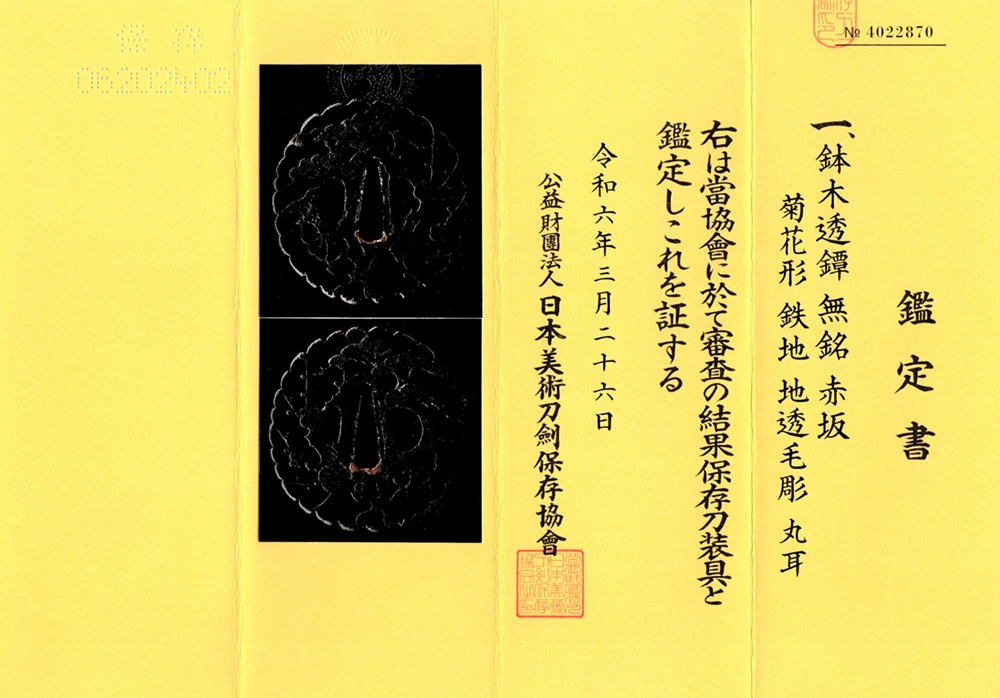 № 4022870
鑑定書
一、鉢木透鐔 無銘 赤坂
菊花形 鉄地 地透毛彫 丸耳
右は當協會に於て審査の結果保存刀装具と
鑑定しこれを証する
令和六年三月二十六日
公益財團法人 日本美術刀劍保存協會
保存
06202402